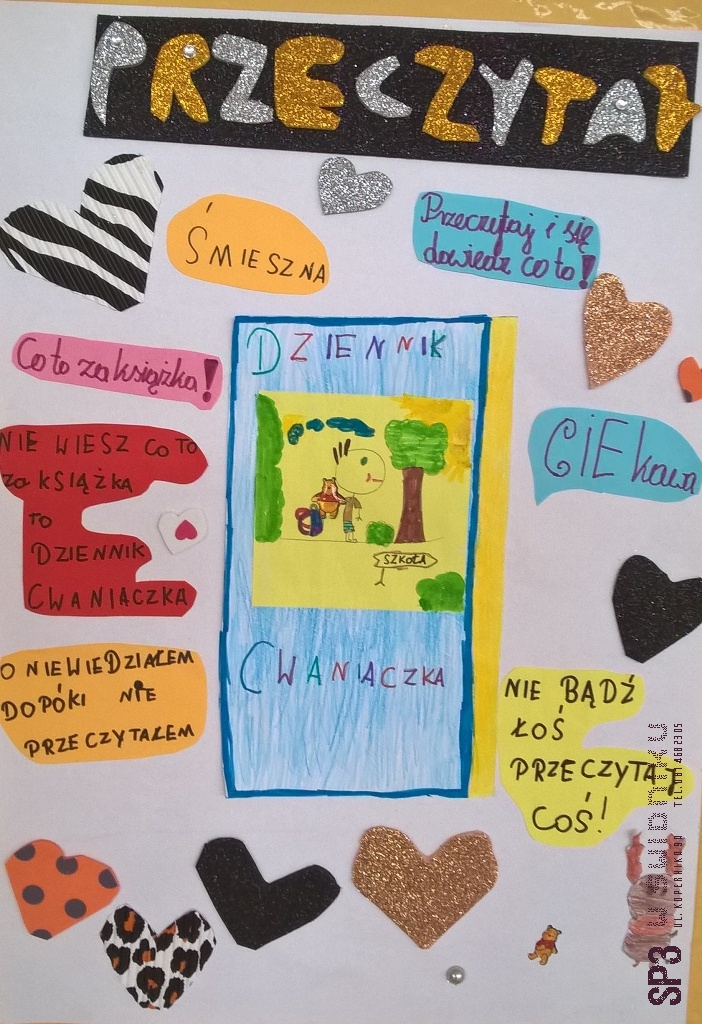 PRZECZYTAJ
ŚMIESZNA
Przeczytaj i się
dowiedz co to!
Co to za książka!
DZIENNIK
CIEkawa
NIE WIESZ CO TO
za KSIĄŻKA
TO
DZIENNIK
CWANIACZKA
SZKOŁA
CWANIACZKA
O NIEWIEDZIAŁEM
DOPÓKI NIE
PRZECZYTAŁEM
NIE BĄDŹ
ŁOŚ
PRZECZYTAJ
COŚ!
SP3
UL. KOPERNIKA 9A TEL. 081 468 23 05